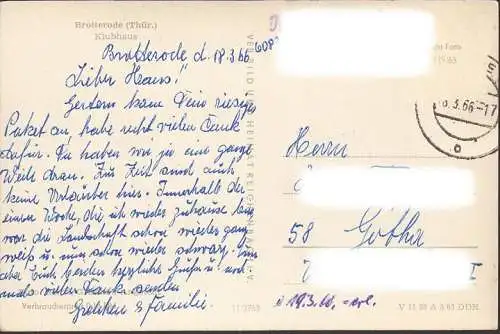 Brotterode (Thür.)
Klubhaus
Brotterode d. 18.3.66
Lieber Hans!
Gestern kam Dein riesiges
Paket an, habe recht vielen Dank
dafür. Da haben wir ja eine ganze
Weile dran. Zur Zeit sind auch
keine Urlauber hier. Innerhalb der
einen Woche, die ich wieder zuhause bin,
war die Landschaft schon wieder ganz
weiß u. nun schon wieder schwarz. Ein
aber Euch beiden herzliche Grüße u. noch
mals vielen Dank senden
Gretchen & Familie.
VERLAG BILD UND HEIMAT REICHENBACH I. V.
Foto
Herrn
58 Gotha
I
19.3.66. - erl.
.3.66-17
Verbraucher
V 11 28 A 5 61 DDR